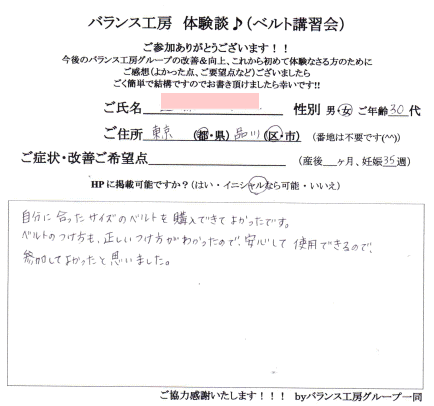 バランス工房 体験談♪(ベルト講習会)
ご参加ありがとうございます!!
今後のバランス工房グループの改善&向上、これから初めて体験なさる方のために
ご感想(よかった点、ご要望点など)ございましたら
ごく簡単で結構ですのでお書き頂けましたら幸いです!!
ご氏名 性別 男・女 ご年齢30代
ご住所 東京 (都・県) 品川 (区・市) (番地は不要です(^^))
ご症状・改善ご希望点 (産後 ヶ月、妊娠35週)
HPに掲載可能ですか?(はい・イニシャルなら可能・いいえ)
自分に合ったサイズのベルトを購入できてよかったです。
ベルトのつけ方も、正しいつけ方がわかったので、安心して使用できるので、
参加してよかったと思いました。
ご協力感謝いたします!!! byバランス工房グループ一同